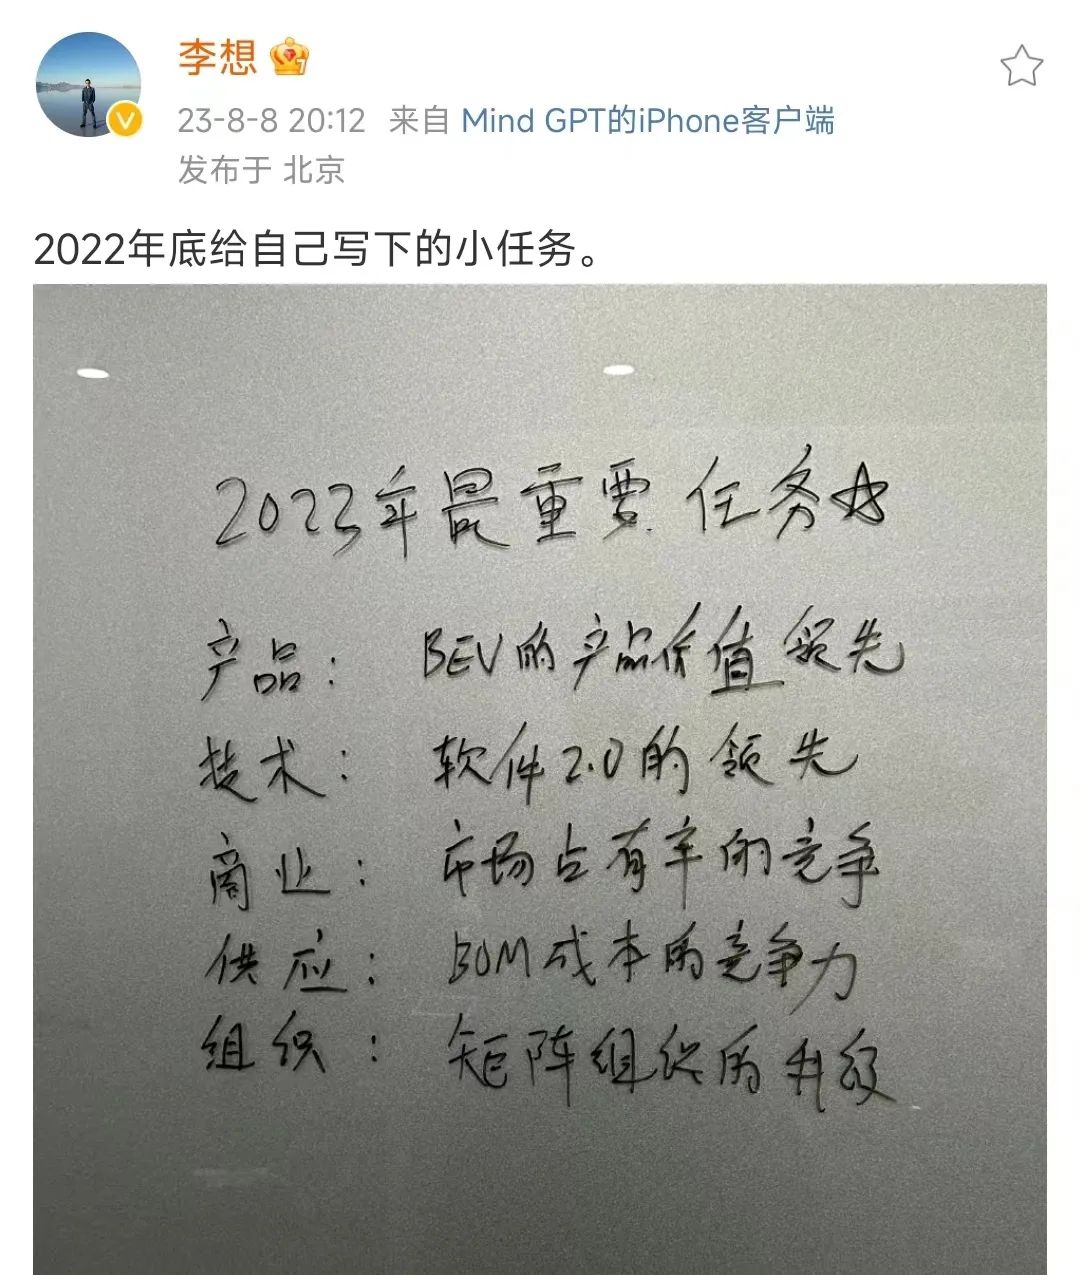 李想
23-8-8 20:12 来自 Mind GPT的iPhone客户端
发布于 北京
2022年底给自己写下的小任务。
2023年最重要任务
产品： BEV的产品价值领先
技术： 软件2.0的领先
商业： 市场占有率的竞争
供应： BOM成本的竞争力
组织： 矩阵组织的升级